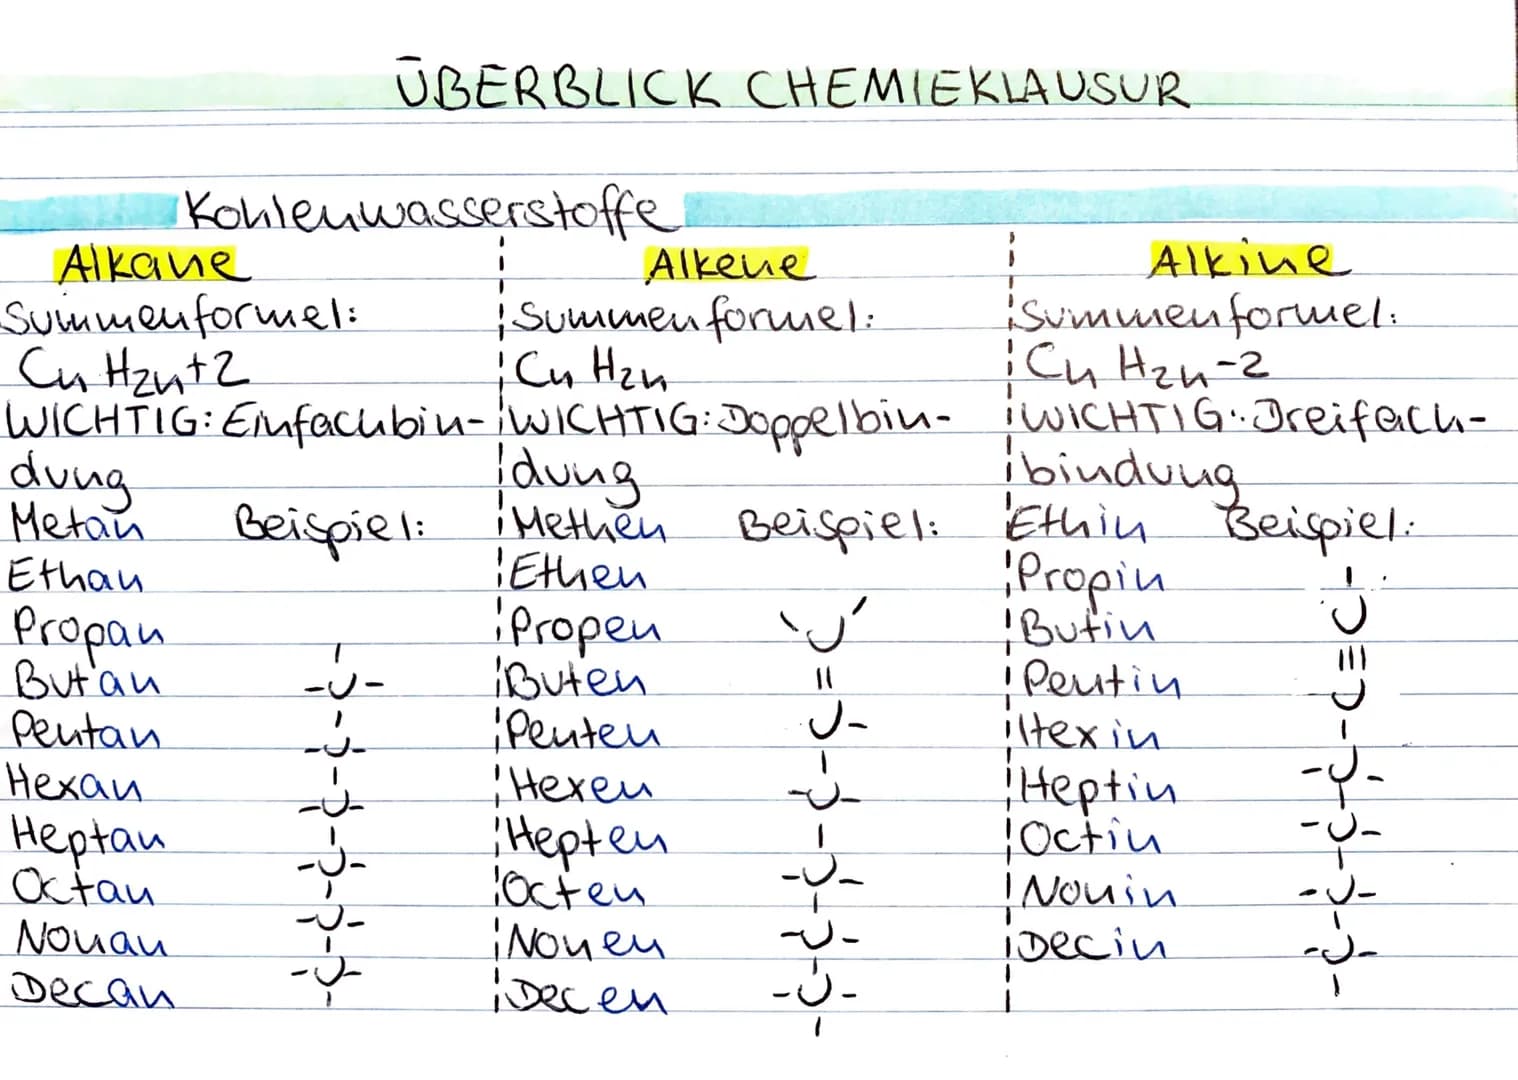 ÜBERBLICK CHEMIEKLAUSUR
Kohlenwasserstoffe
Alkane
Summenformel:
CnH2n+2
WICHTIG: Einfachbin-
dung
Metan Beispiel:
Ethan
Propan
Butan
Pentan
Hexan
Heptan
Octan
Nonan
Decan
Alkene
Summenformel:
CnH2n
WICHTIG: Doppelbin-
dung
Methen Beispiel:
Ethen
Propen
Buten
Penten
Hexen
Hepten
Octen
Nonen
Decen
Alkine
Summenformel:
CnH2n-2
WICHTIG: Dreifach-
bindung
Ethin Beispiel:
Propin
Butin
Pentin
Hexin
Heptin
Octin
Nonin
Decin